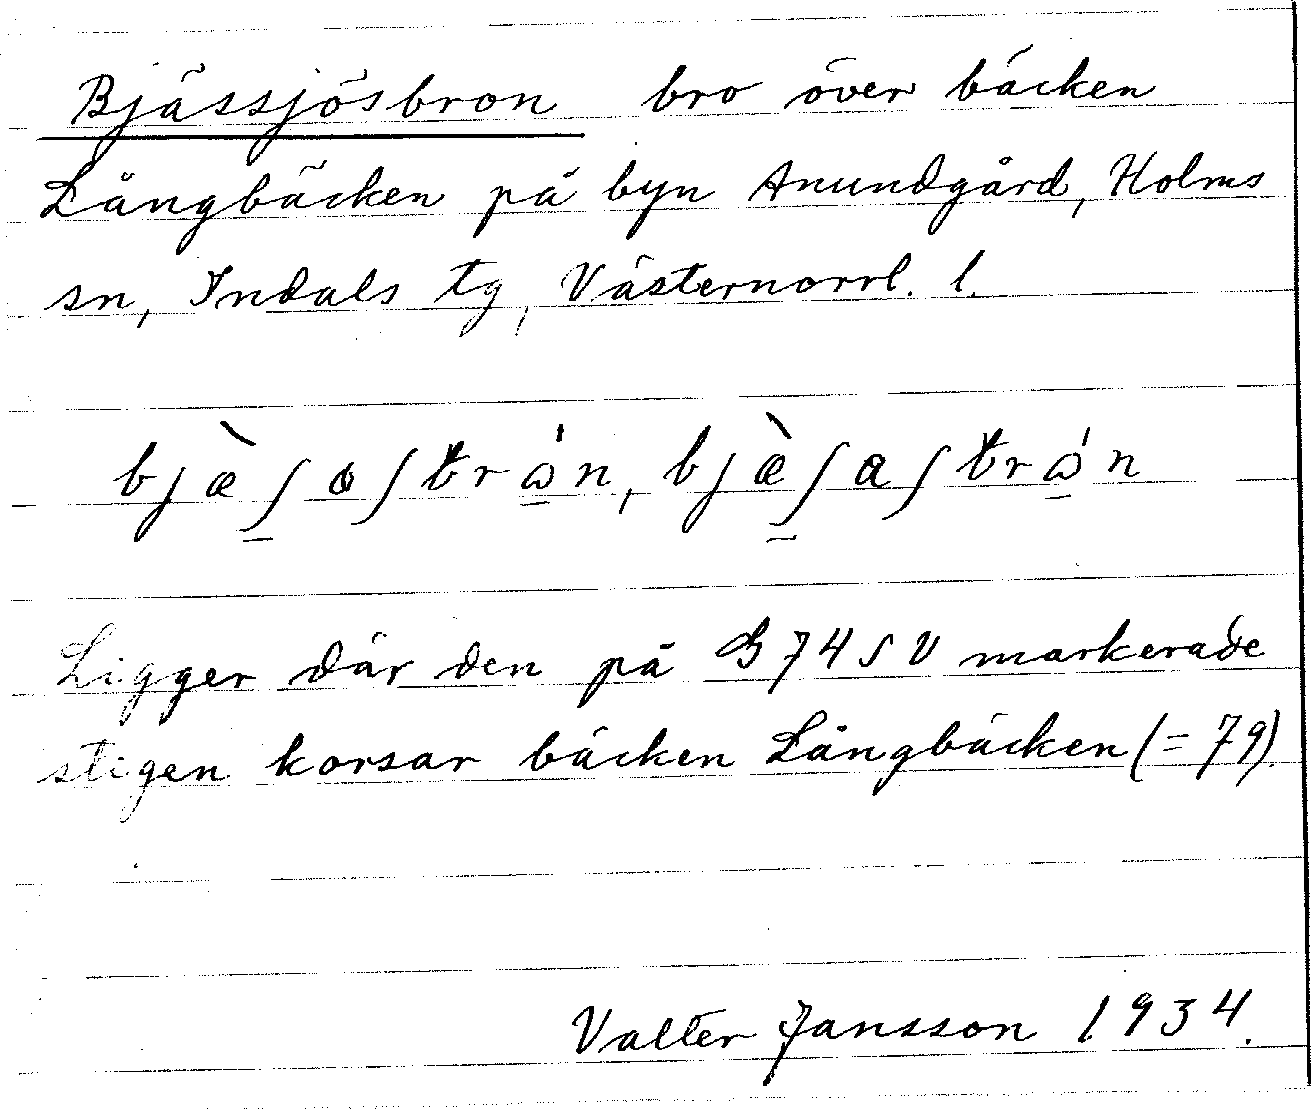 Bjässjösbron bro över bäcken
Långbäcken på byn Anundgård, Holms
sn, Indals tg, Västernorrl. l.
bjæ̀ʃoʃbrɷ́n, bjæ̀ʃaʃbrɷ́n
Ligger där den på G74SV markerade
stigen korsar bäcken Långbäcken (= 79).
Valter Jansson 1934.